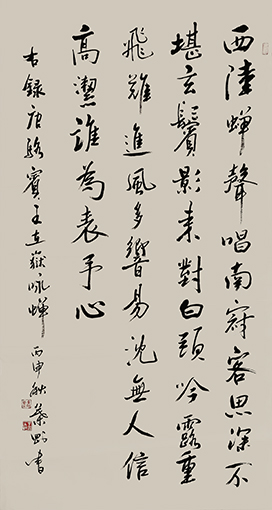 西陸蟬聲唱南冠客思深不
堪玄鬢影来對白頭吟露重
飛難進風多響易沈無人信
高潔誰為表予心
右録唐駱賓王在獄詠蟬 丙申秋 書